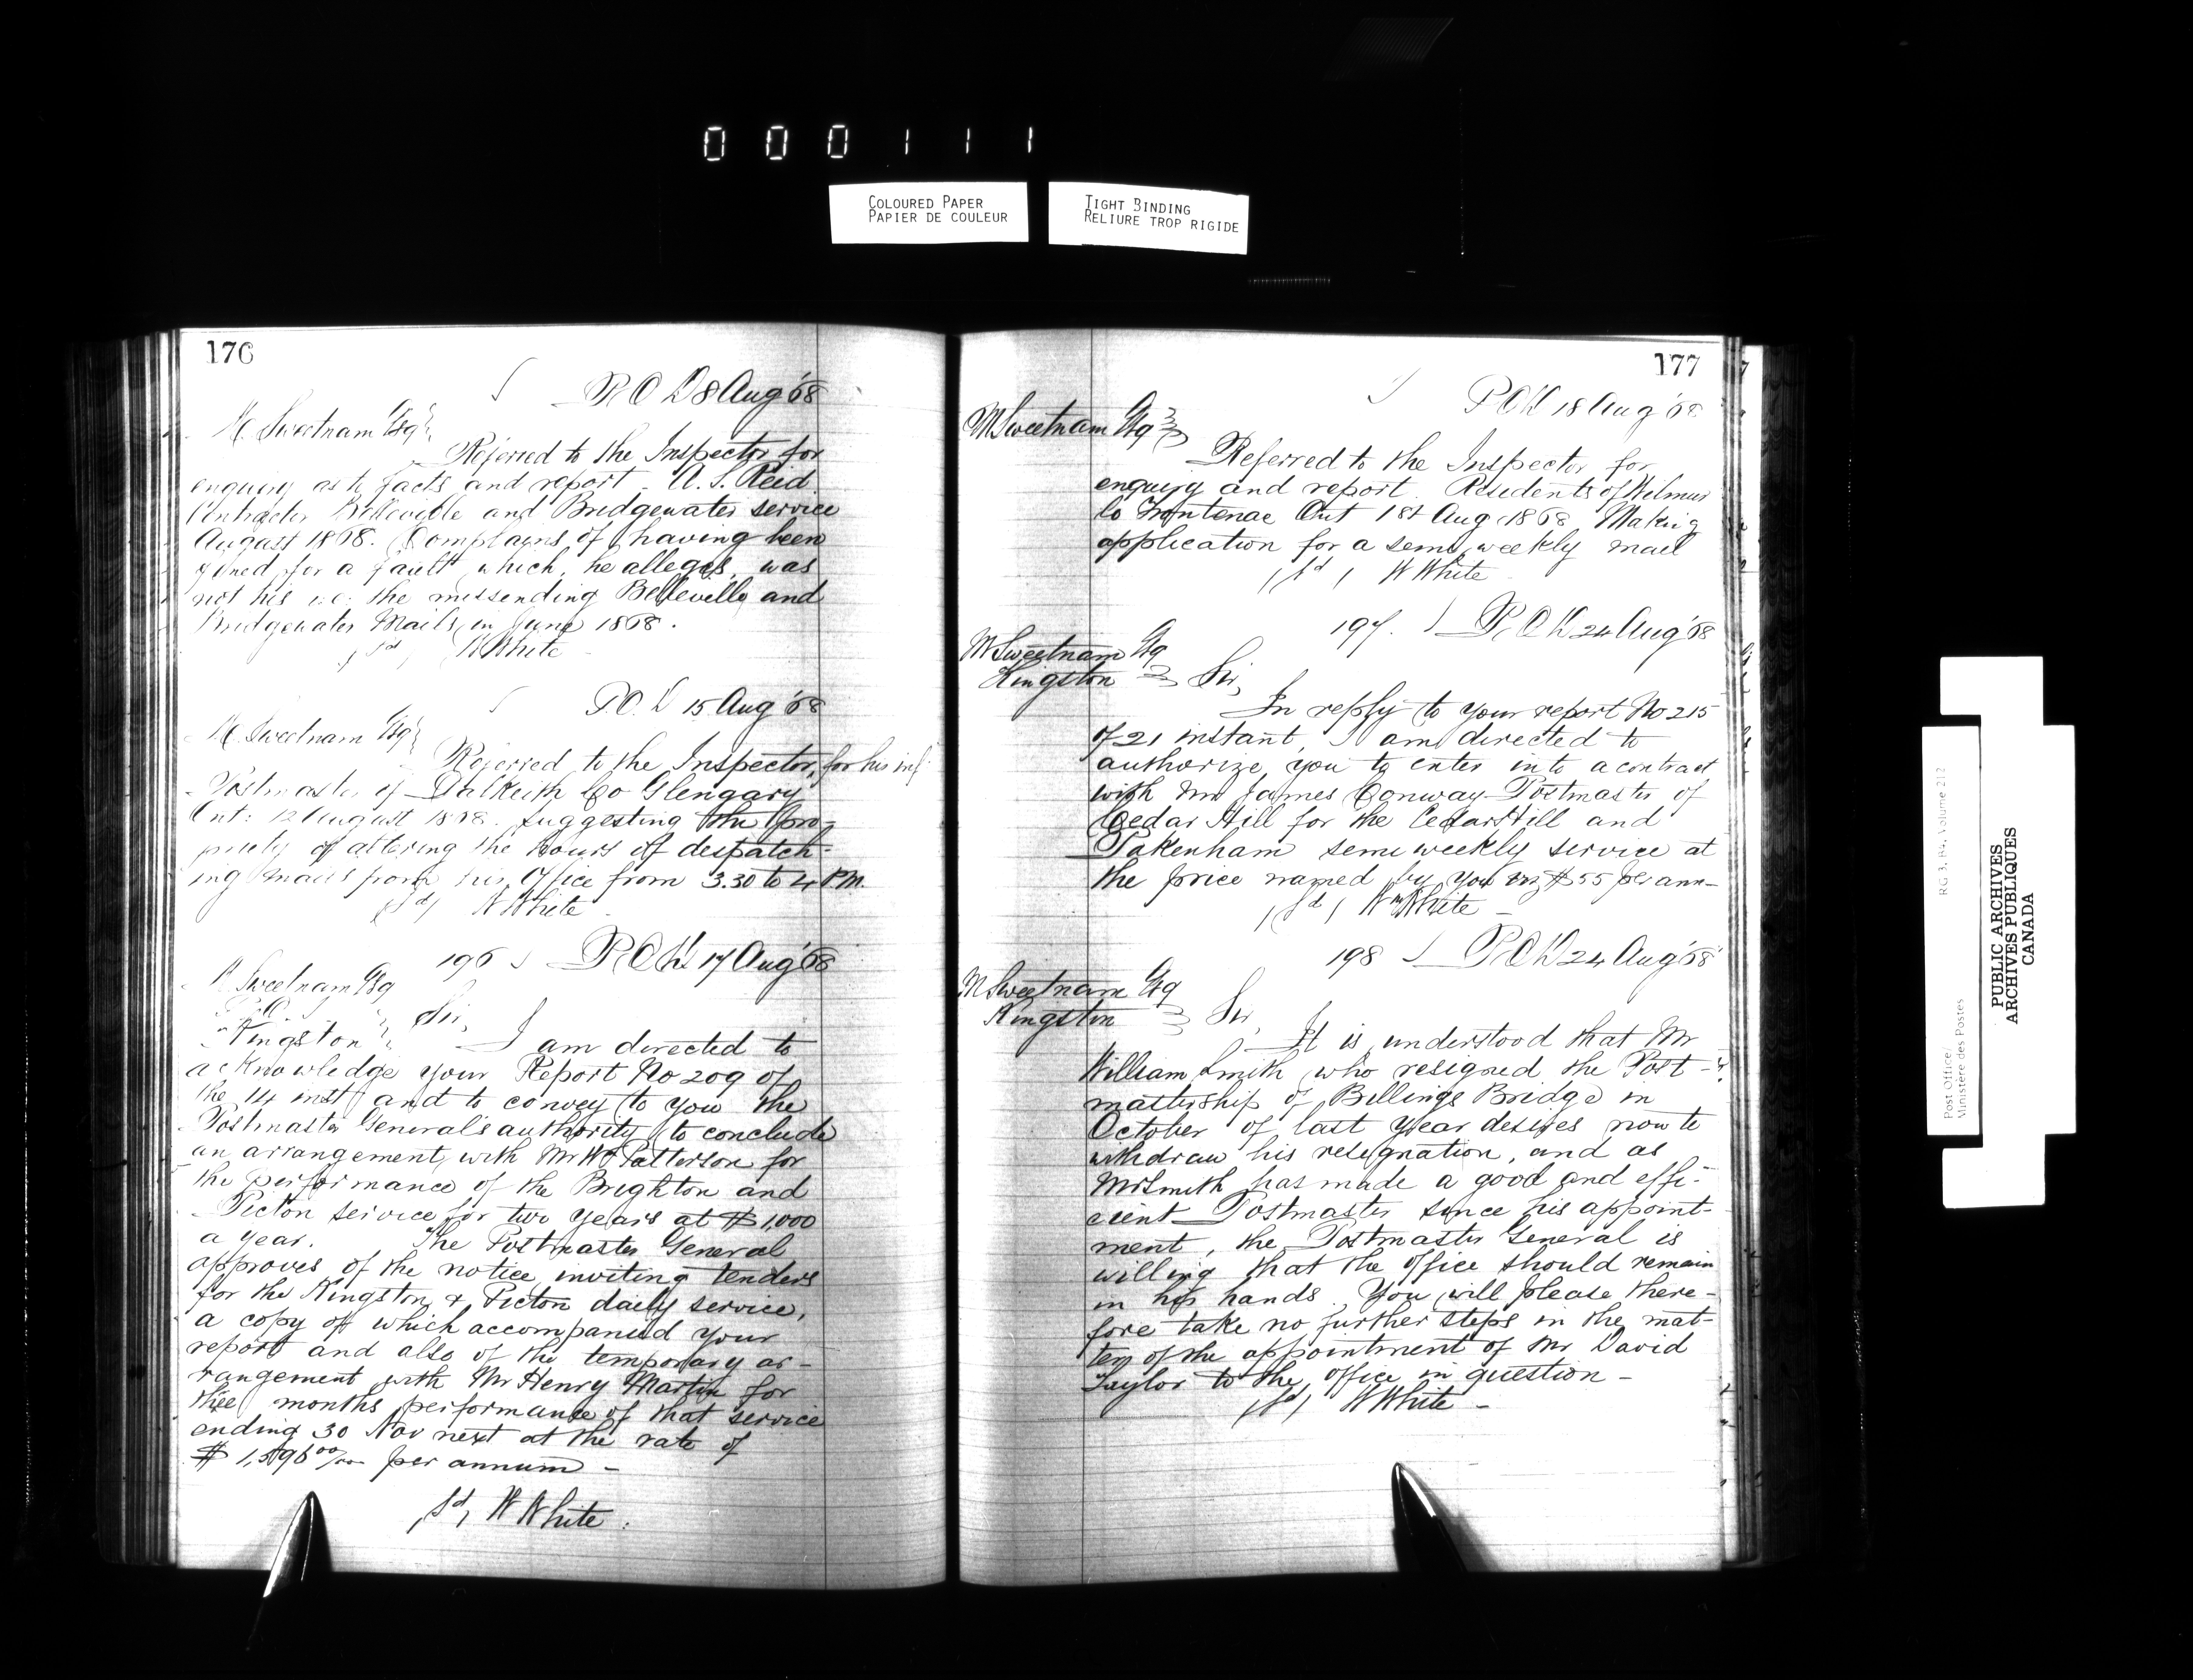 000111
COLOURED PAPER
PAPIER DE COULEUR
TIGHT BINDING
RELIURE TROP RIGIDE
176
P.O.D 8 Aug '68
M. Sweetnam Esq
Referred to the Inspector for
enquiry as to facts and report - A. S. Reed
Contractor Belleville and Bridgewater service
August 1868. Complains of having been
fined for a fault which, he alleges, was
not his i.e. the missending Belleville and
Bridgewater Mails in June 1868.
(Sd) W White
P.O.D 15 Aug '68
M. Sweetnam Esq
Referred to the Inspector, for his inf
Postmaster of Dalkeith Co Glengary
Ont: 12 August 1868. suggesting the pro-
priety of altering the hours of despatch-
ing mails from his Office from 3.30 to 4 P.M.
(Sd) W White
196 P.O.D. 17 Aug '68
M Sweetnam Esq
P.O.I.
Kingston
Sir,
I am directed to
acknowledge your Report No 209 of
the 14 inst and to convey to you the
Postmaster General's authority to conclude
an arrangement with Mr W Patterson for
the performance of the Brighton and
Picton service for two years at $1,000
a year. The Postmaster General
approves of the notice inviting tenders
for the Kingston & Picton daily service,
a copy of which accompanied your
report and also of the temporary ar-
rangement with Mr Henry Martin for
thee months performance of that service
ending 30 Nov next at the rate of
$ per annum -
(Sd) W White.
177
P.O.D 18 Aug '68
M Sweetnam Esq
Referred to the Inspector for
enquiry and report. Residents of Wilmur
Co Frontenac Ont 18t Aug 1868 Making
application for a semi weekly mail
(Sd) W White
197. P.O.D 24 Aug '68
M Sweetnam Esq
Kingston
Sir,
In reply to your report No 215
of 21 instant, I am directed to
authorize you to enter into a contract
with Mr James Conway Postmaster of
Cedar Hill for the Cedar Hill and
Pakenham semi weekly service at
the price named by you viz $55 per ann-
(Sd) Wm White -
198 P.O.D 24 Aug '68
M Sweetnam Esq
Kingston
Sir,
It is understood that Mr
William Smith who resigned the Post-
mastership of Billings Bridge in
October of last year desires now to
withdraw his resignation, and as
Mr Smith has made a good and effi-
cient Postmaster since his appoint-
ment, the Postmaster General is
willing that the office should remain
in his hands. You will please there-
fore take no further steps in the mat-
ter of the appointment of Mr David
Taylor to the office in question -
(Sd) W White -
Post Office/
Ministère des Postes
RG 3, Volume 212
PUBLIC ARCHIVES
ARCHIVES PUBLIQUES
CANADA